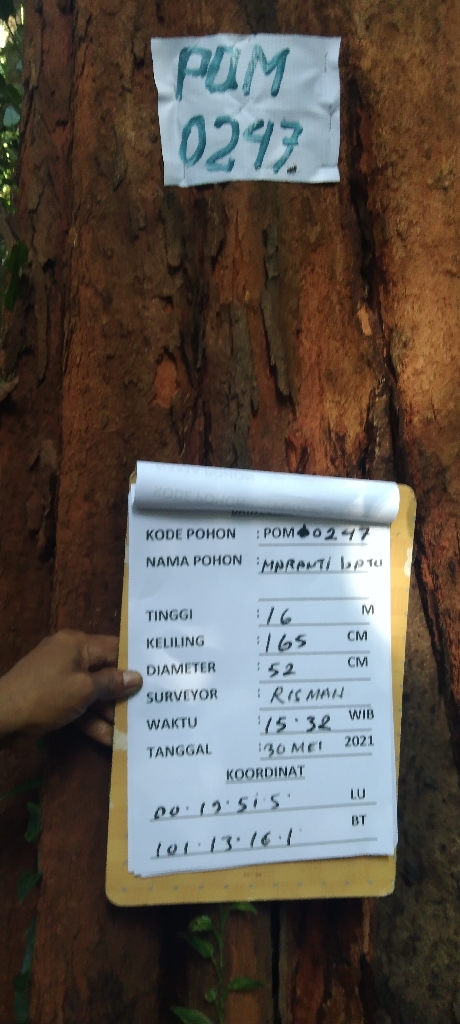 POM
0247
KODE POHON : POM 0247
NAMA POHON : MARANTI BATU
TINGGI : 16 M
KELILING : 165 CM
DIAMETER : 52 CM
SURVEYOR : RISMAN
WAKTU : 15.32 WIB
TANGGAL : 30 MEI 2021
KOORDINAT
LU
101.13.16.1 BT